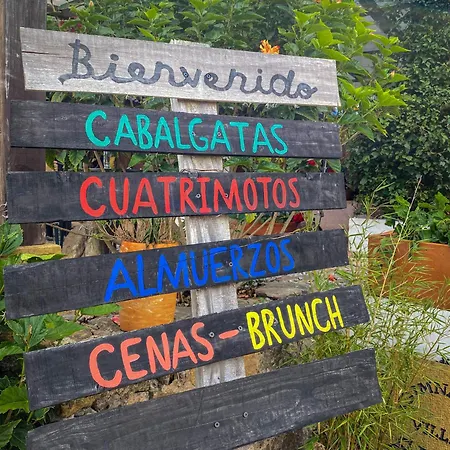 Bienvenido
CABALGATAS
CUATRIMOTOS
ALMUERZOS
CENAS - BRUNCH